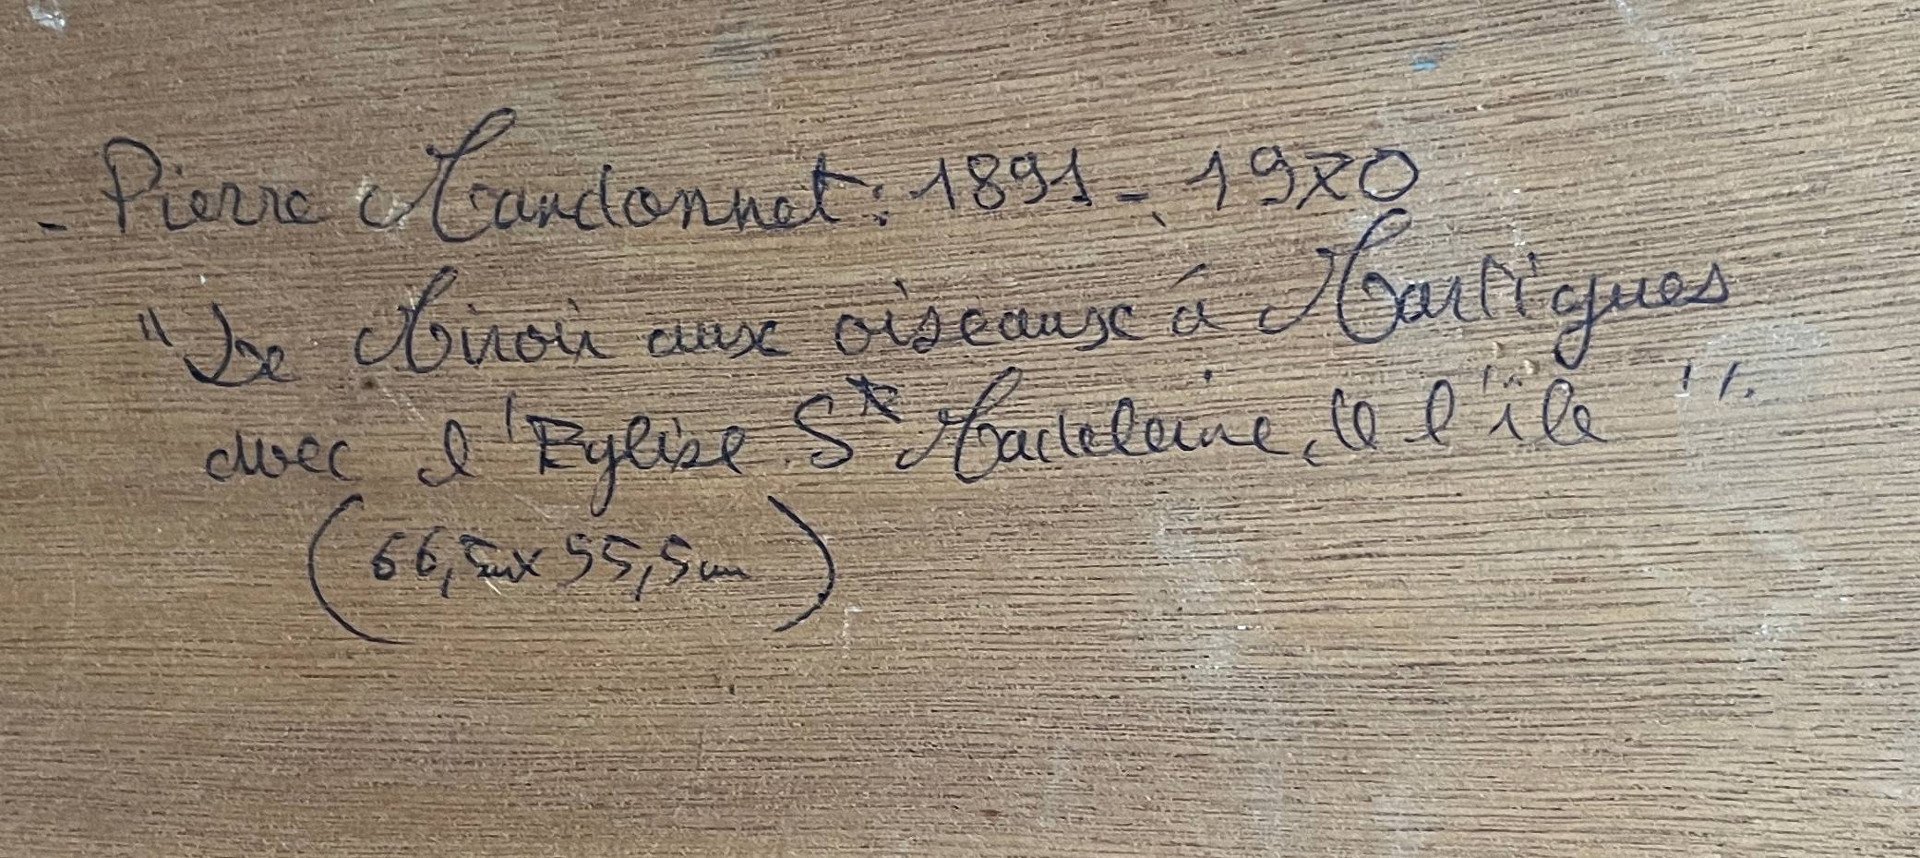 - Pierre Mardonnet : 1891 - 1970
"Le Miroir aux oiseaux à Martigues
avec l'Eglise Ste Madeleine, de l'île ".
(66,5cm x 55,5cm)